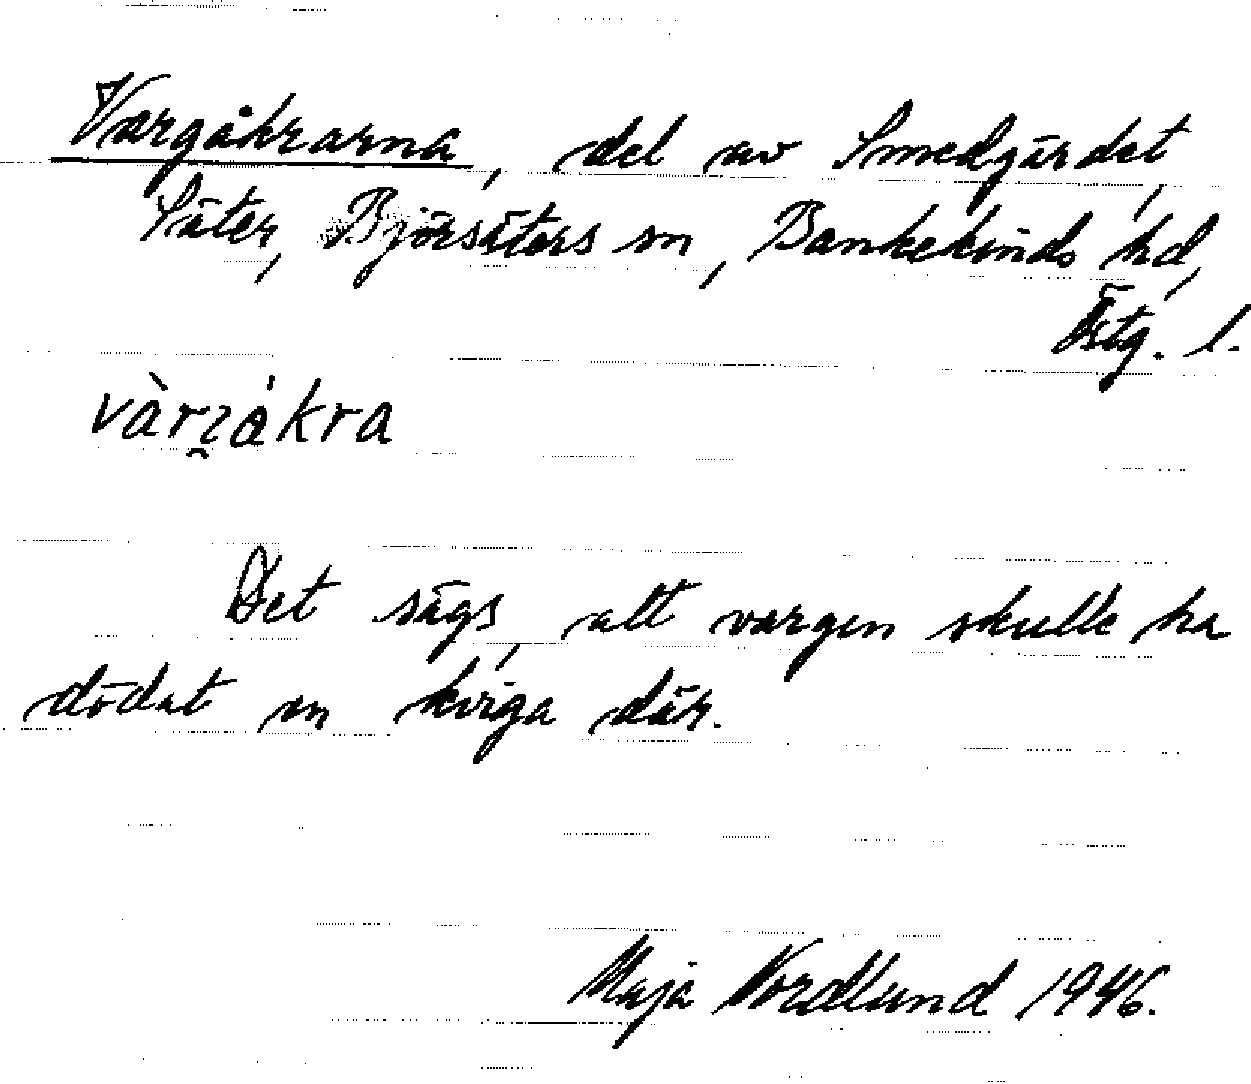 Vargåkrarna, del av Smedgärdet,
Säter, Björsäters sn, Bankekinds hd,
Östg. l.
vàrʒåkra
Det sägs, att vargen skulle ha
dödat en kviga där.
Maja Nordlund 1946.